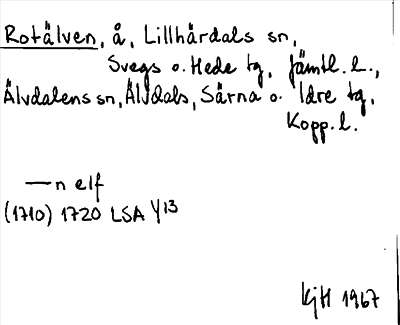 Rotälven, å, Lillhärdals sn,
Svegs o. Hede tg, Jämtl. l.,
Älvdalens sn, Älvdals, Särna o. Idre tg,
Kopp. l.
—n elf
(1710) 1720 LSA Y13
KjH 1967